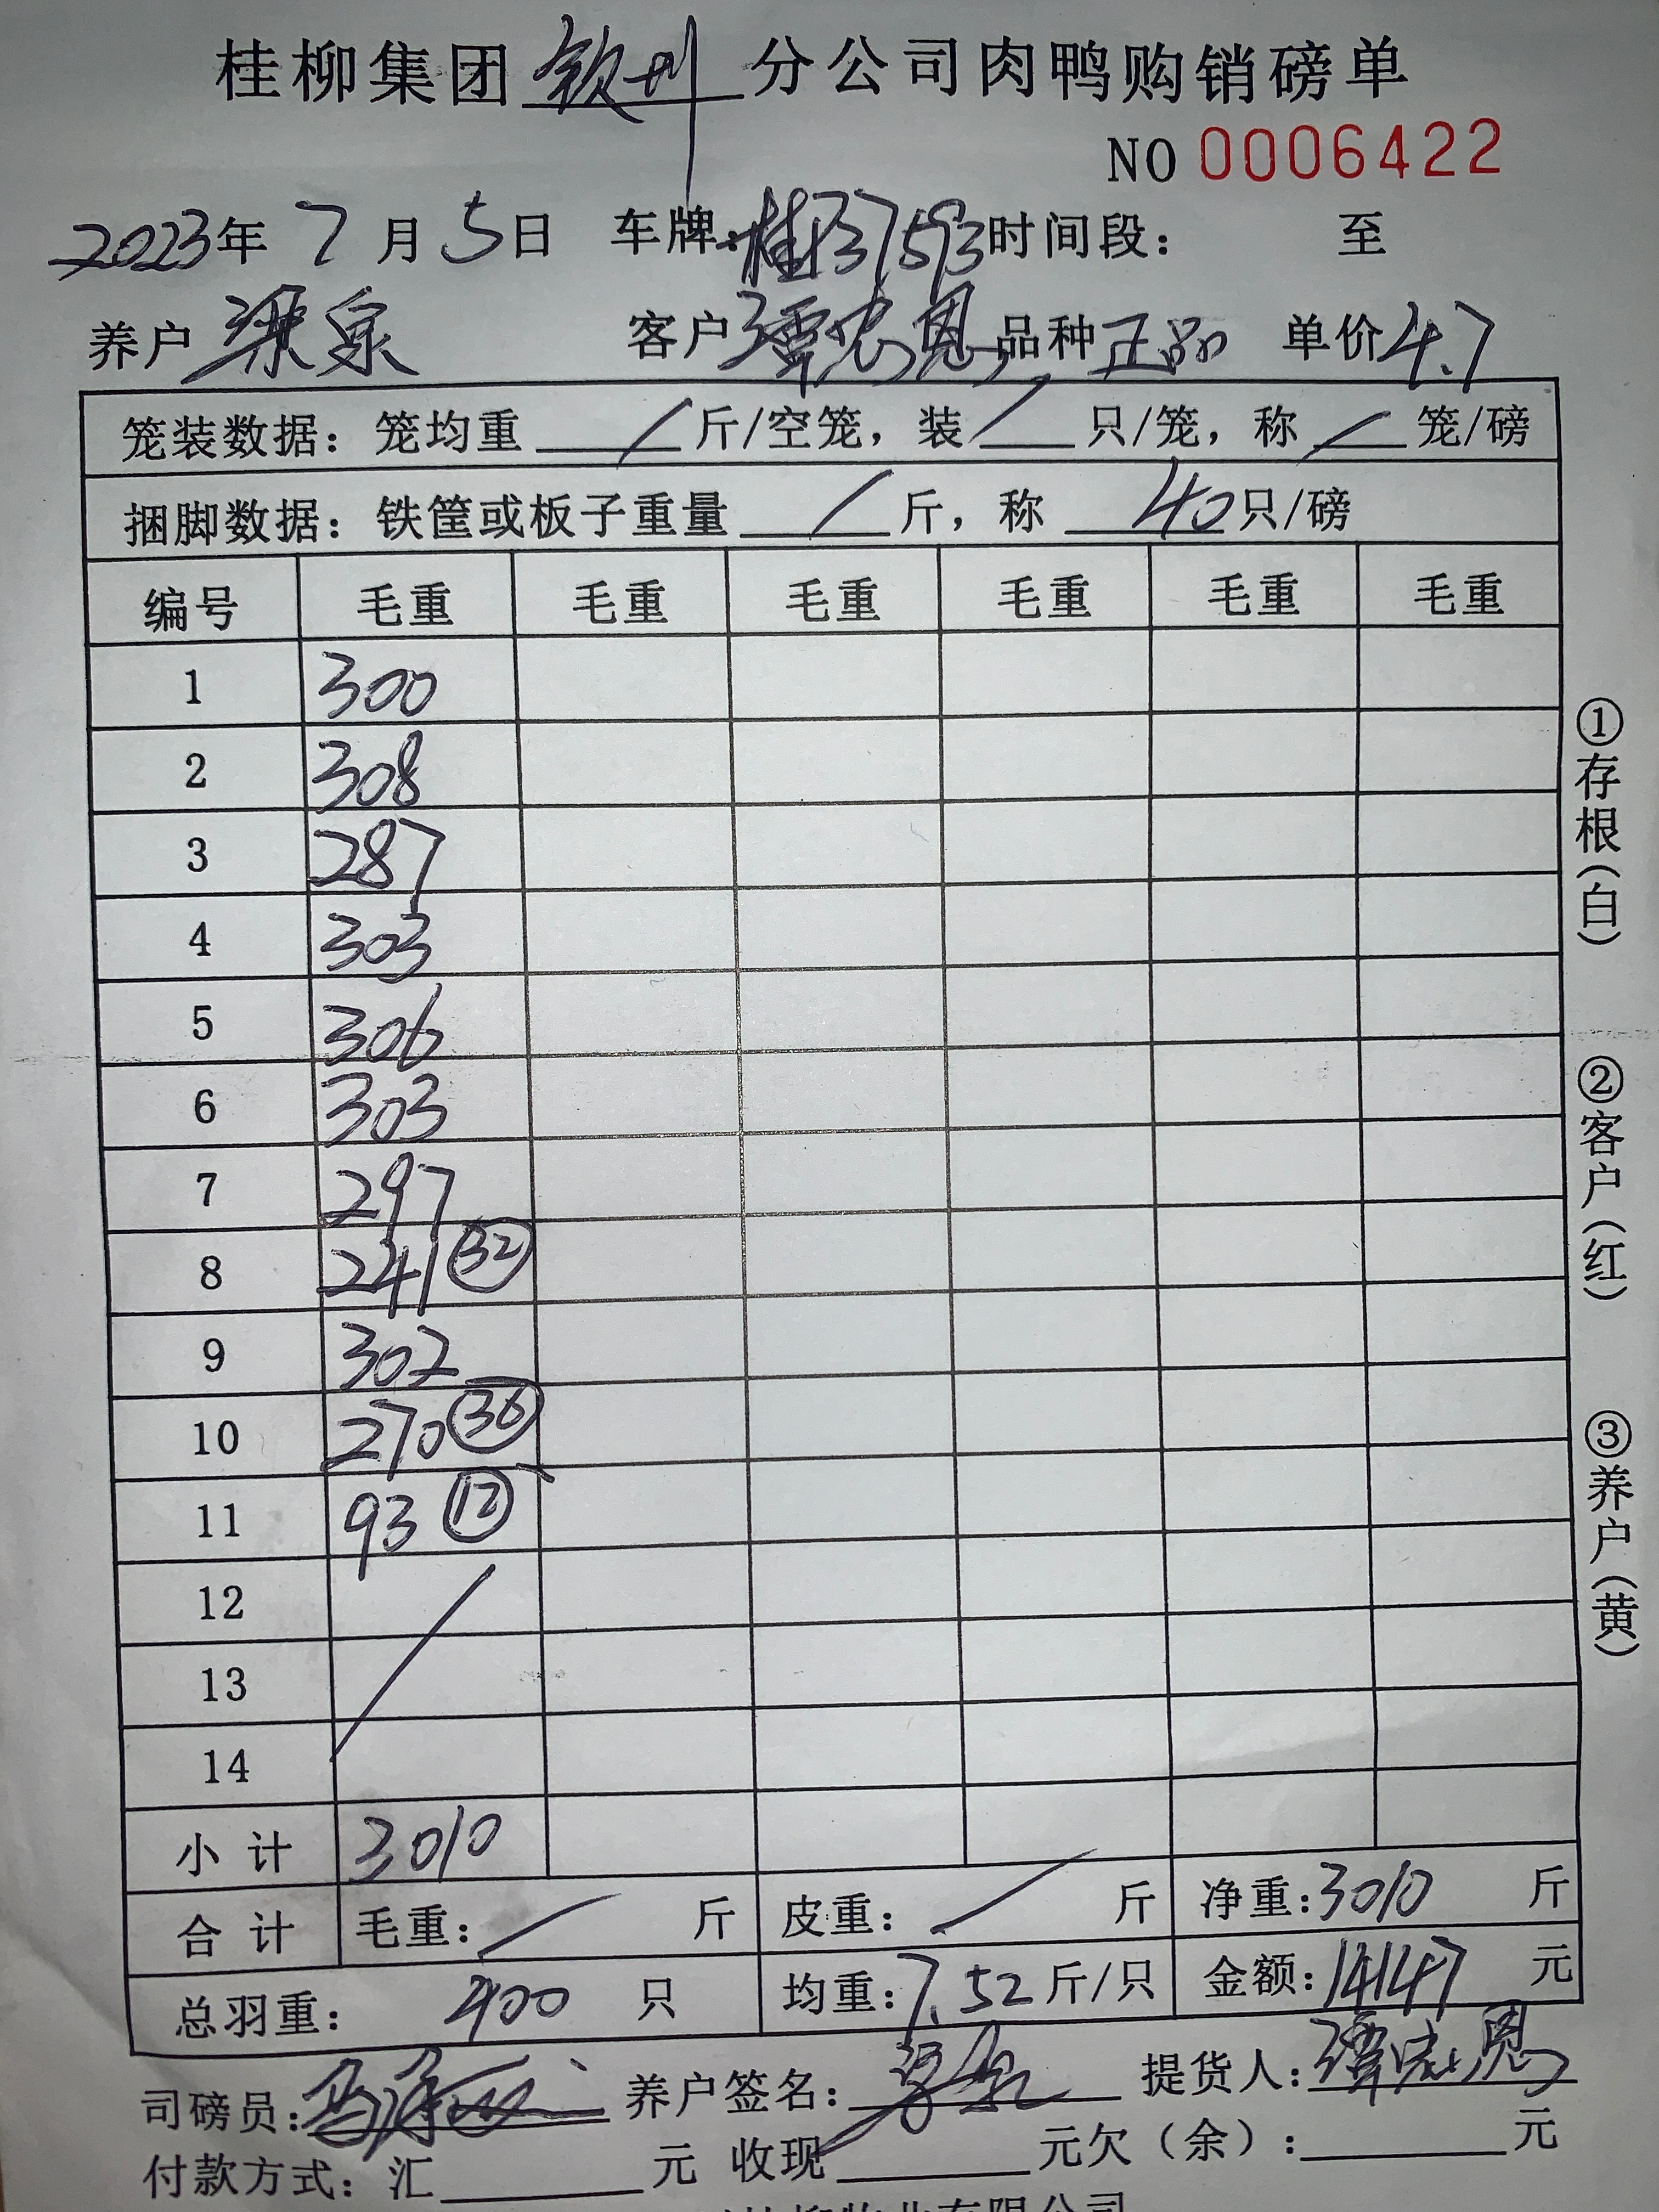 桂柳集团 钦州 分公司肉鸭购销磅单
NO 0006422
2023年 7月 5日 车牌: 时间段: 至
养户 梁泉 客户 谭宏恩 品种 正品 单价 4.7
笼装数据: 笼均重 / 斤/空笼, 装 / 只/笼, 称 / 笼/磅
捆脚数据: 铁筐或板子重量 / 斤, 称 40 只/磅
编号 毛重 毛重 毛重 毛重 毛重 毛重
1 300
2 308
3 287
4 303
5 306
6 303
7 297
8 241 32
9 302
10 270 36
11 93 12
12
13
14
小计 3010
合计 毛重: / 斤 皮重: / 斤 净重: 3010 斤
总羽重: 400 只 均重: 7.52 斤/只 金额: 14147 元
司磅员: 养户签名: 梁泉 提货人: 谭宏恩
付款方式: 汇 元 收现 元欠(余): 元
①存根(白)
②客户(红)
③养户(黄)